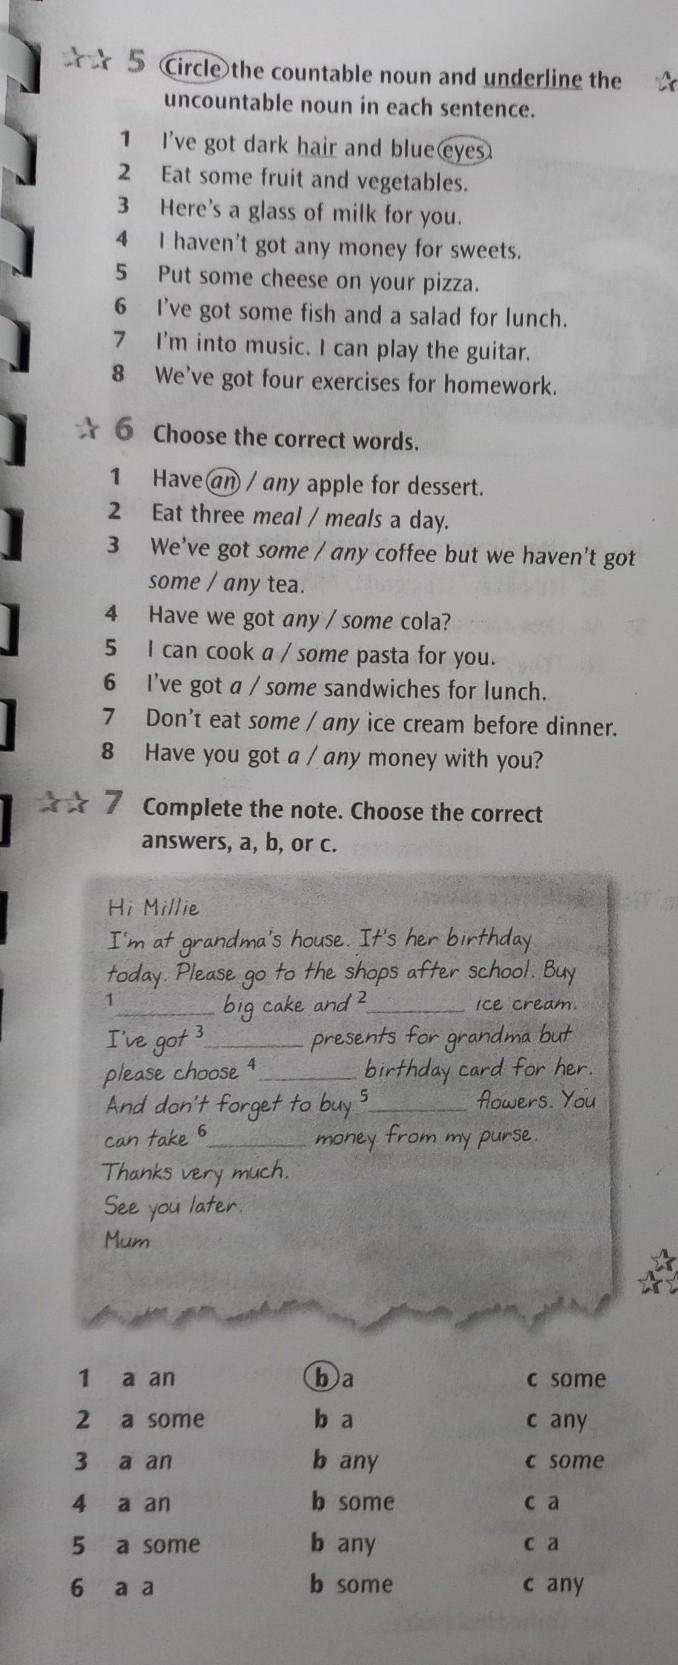 5 Circle the countable noun and underline the
uncountable noun in each sentence.
1 I've got dark hair and blue eyes.
2 Eat some fruit and vegetables.
3 Here's a glass of milk for you.
4 I haven't got any money for sweets.
5 Put some cheese on your pizza.
6 I've got some fish and a salad for lunch.
7 I'm into music. I can play the guitar.
8 We've got four exercises for homework.
6 Choose the correct words.
1 Have an / any apple for dessert.
2 Eat three meal / meals a day.
3 We've got some / any coffee but we haven't got
some / any tea.
4 Have we got any / some cola?
5 I can cook a / some pasta for you.
6 I've got a / some sandwiches for lunch.
7 Don't eat some / any ice cream before dinner.
8 Have you got a / any money with you?
7 Complete the note. Choose the correct
answers, a, b, or c.
Hi Millie
I'm at grandma's house. It's her birthday
today. Please go to the shops after school. Buy
1 ________ big cake and 2 ________ ice cream.
I've got 3 ________ presents for grandma but
please choose 4 ________ birthday card for her.
And don't forget to buy 5 ________ flowers. You
can take 6 ________ money from my purse.
Thanks very much.
See you later.
Mum
1 a an b a c some
2 a some b a c any
3 a an b any c some
4 a an b some c a
5 a some b any c a
6 a a b some c any